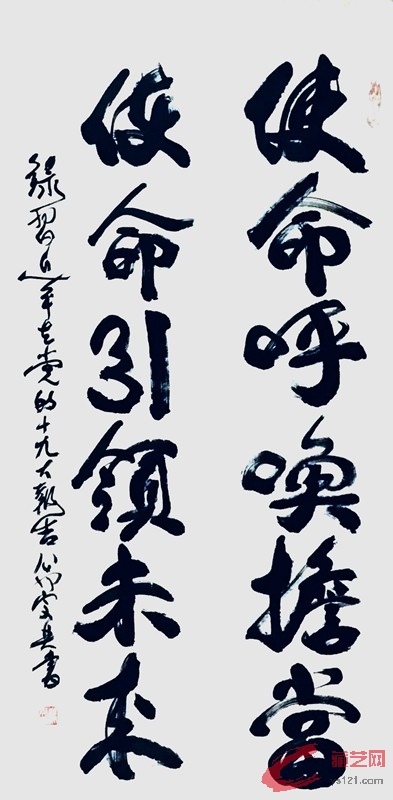 使命呼唤擔当
使命引領未来
録習近平在党的十九大报告
藏艺网
s121.com